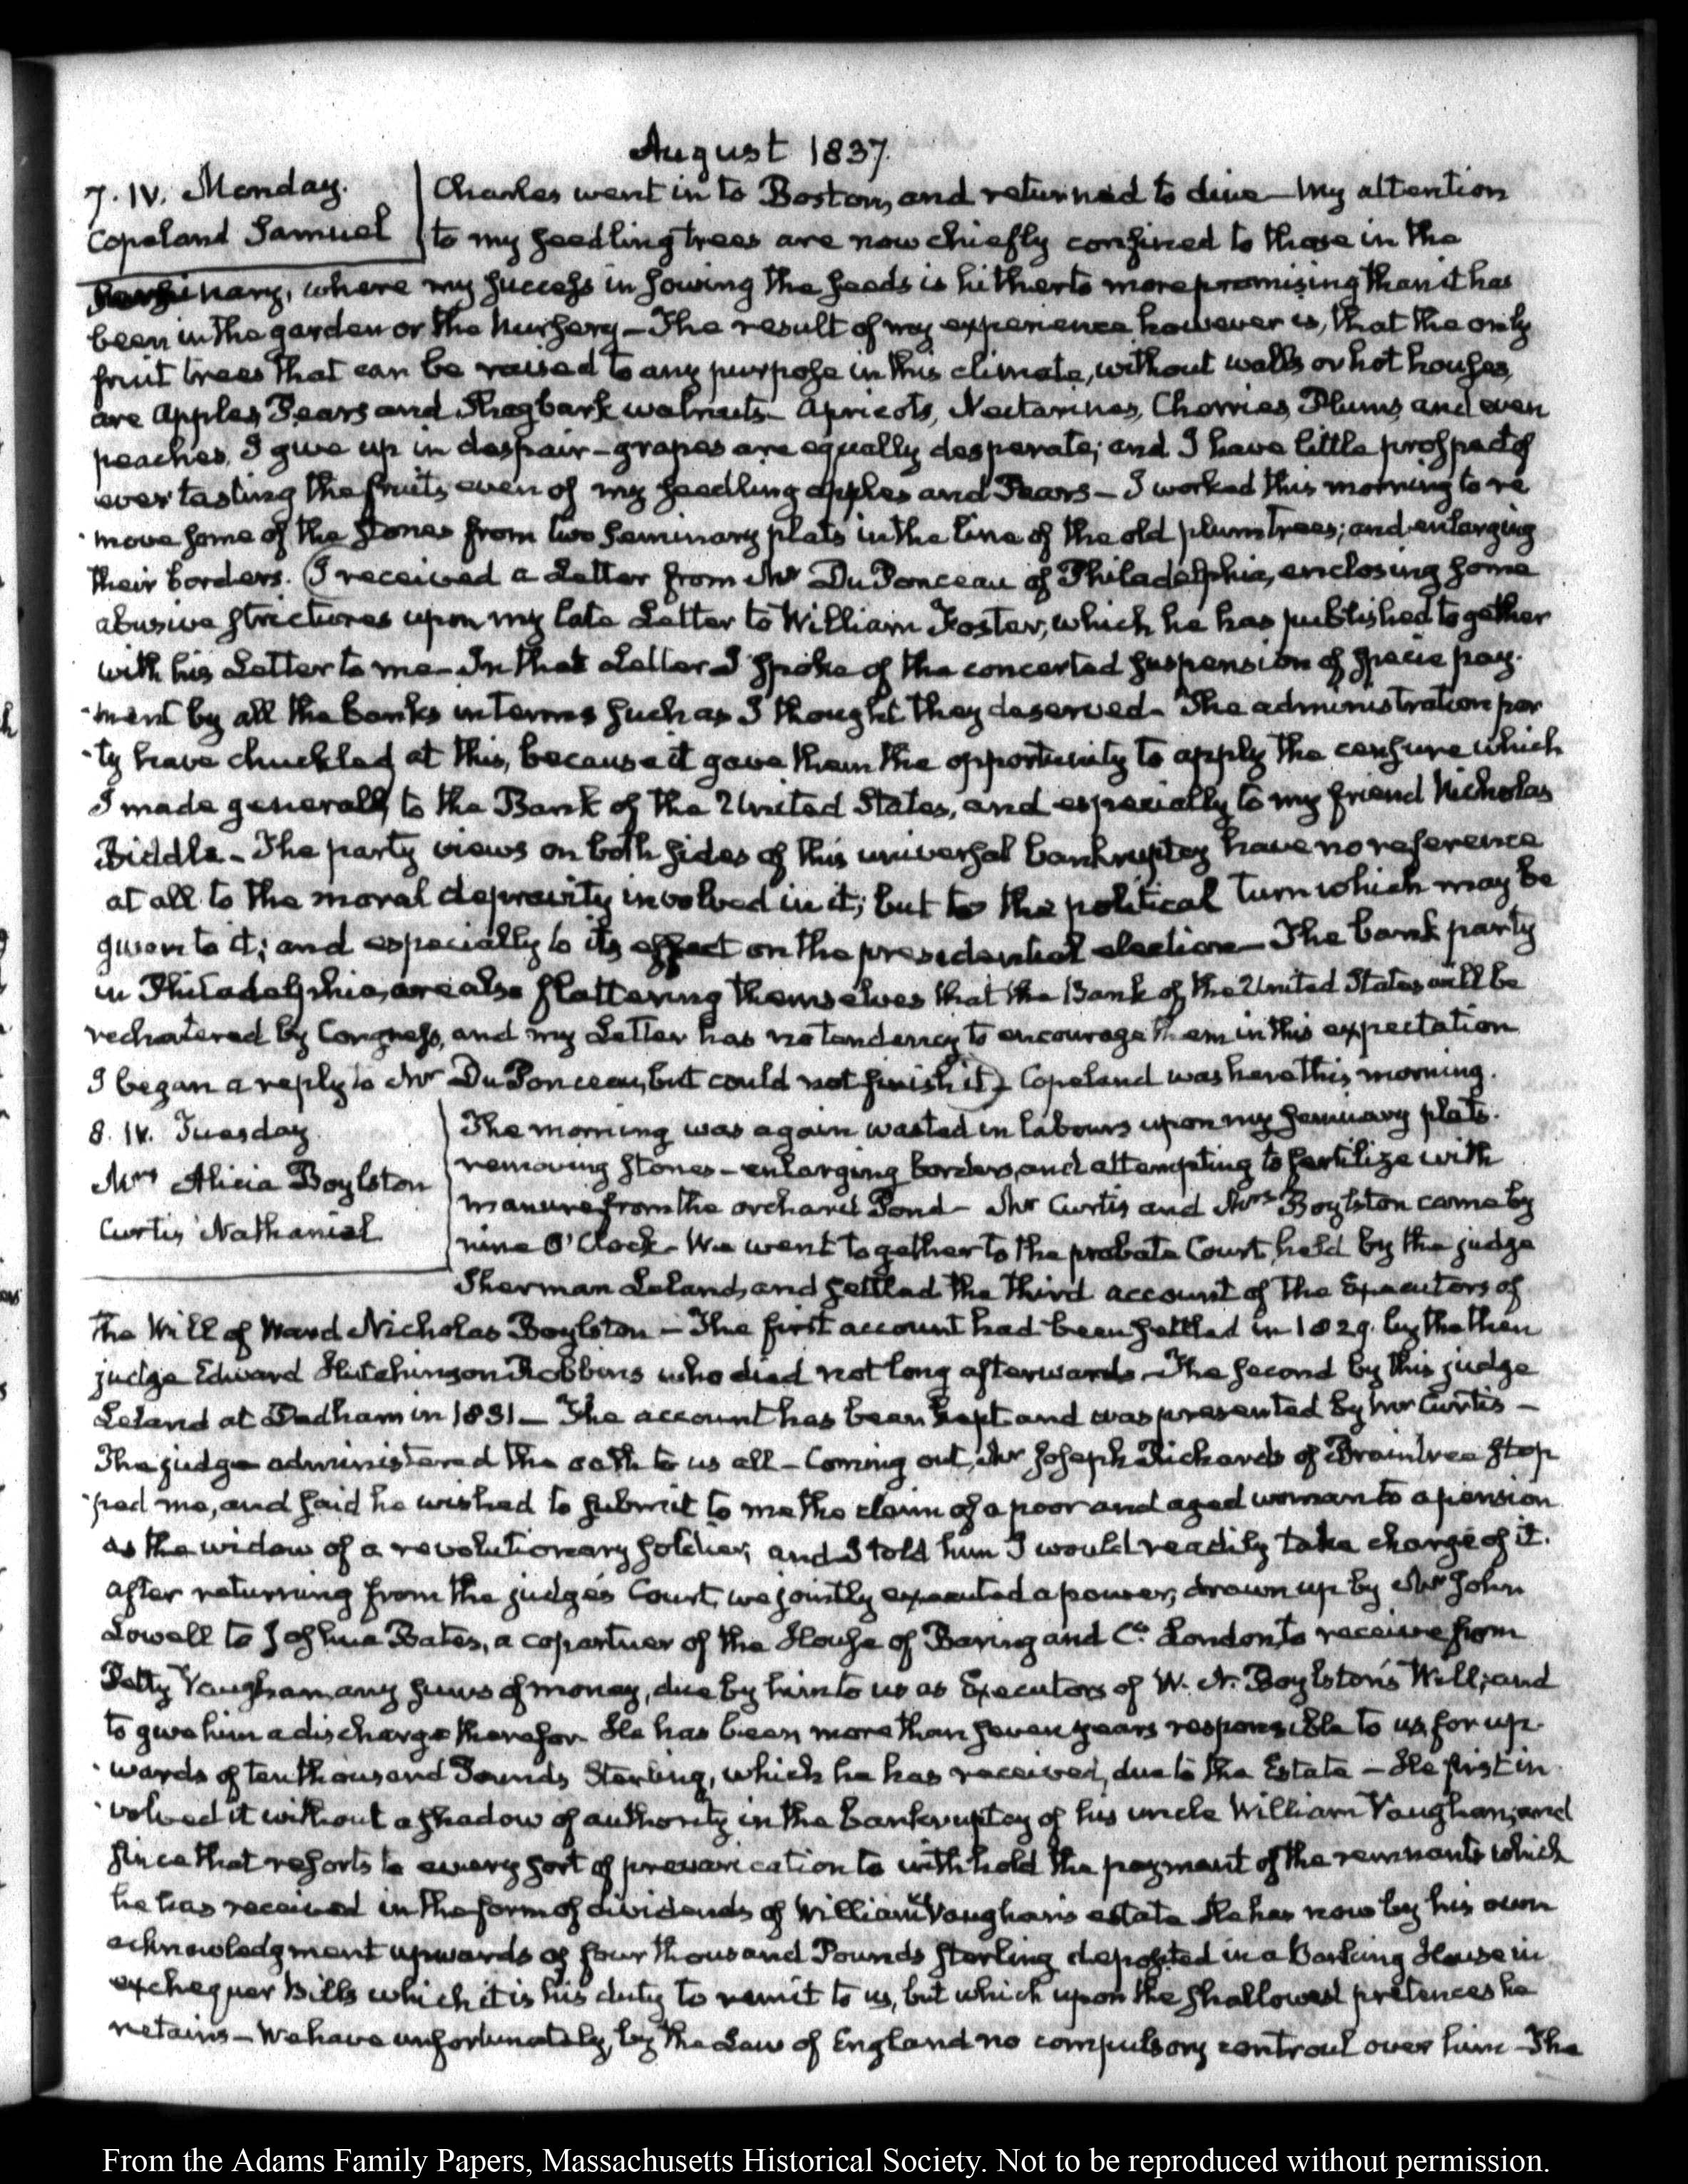 August 1837.
7. IV. Monday.
Copeland Samuel
Charles went in to Boston, and returned to dine — My attention
to my seedling trees are now chiefly confined to those in the
Seminary, where my success in sowing the seeds is hitherto more promising than it has
been in the garden or the Nursery — The result of my experience however is, that the only
fruit trees that can be raised to any purpose in this climate, without walls or hot houses,
are Apples, Pears and Shagbark walnuts — Apricots, Nectarines, Cherries, Plums, and even
peaches, I give up in despair — grapes are equally desperate; and I have little prospect of
ever tasting the fruits even of my seedling apples and Pears — I worked this morning to re
-move some of the stones from two seminary plats in the line of the old plum trees; and enlarging
their borders. (I received a Letter from Mr Du Ponceau of Philadelphia, enclosing some
abusive strictures upon my late Letter to William Foster, which he has published together
with his Letter to me — In that Letter I spoke of the concerted suspension of specie pay-
-ment by all the banks in terms such as I thought they deserved — The administration par
-ty have chuckled at this, because it gave them the opportunity to apply the censure which
I made general, to the Bank of the United States, and especially to my friend Nicholas
Biddle — The party views on both sides of this universal bankruptcy have no reference
at all to the moral depravity involved in it; but to the political turn which may be
given to it; and especially to its effect on the presidential election — The bank party
in Philadelphia, are also flattering themselves that the Bank of the United States will be
rechatered by Congress, and my Letter has no tendency to encourage them in this expectation
I began a reply to Mr Du Ponceau, but could not finish it) Copeland was here this morning.
8. IV. Tuesday.
Mrs Alicia Boylston
Curtis Nathaniel
The morning was again wasted in labours upon my seminary plats.
removing stones — enlarging borders, and attempting to fertilize with
manure from the orchard Pond — Mr Curtis and Mrs Boylston came by
nine O'Clock — We went together to the probate Court, held by the judge
Sherman Leland, and settled the third account of the Executors of
the Will of Ward Nicholas Boylston — The first account had been settled in 1829. by the then
judge Edward Hutchinson Robbins who died not long afterwards — The second by this judge
Leland at Dedham in 1831 — The account has been kept and was presented by Mr Curtis —
The judge administered the oath to us all — Coming out, Mr Joseph Richards of Braintree stop
-ped me, and said he wished to submit to me the claim of a poor and aged woman to a pension
as the widow of a revolutionary soldier, and I told him I would readily take charge of it.
After returning from the judge's Court, we jointly executed a power, drawn up by Mr John
Lowell to Joshua Bates, a copartner of the House of Baring and Co. London, to receive from
Petty Vaughan, any sums of money, due by him to us as Executors of W. N. Boylston's Will; and
to give him a discharge therefor. He has been more than seven years responsible to us for up-
-wards of ten thousand Pounds Sterling, which he has received, due to the Estate — He first in-
-volved it without a shadow of authority in the bankruptcy of his uncle William Vaughan; and
since that resorts to every sort of prevarication to withhold the payment of the remnants which
he has received in the form of dividends of William Vaughan's estate He has now by his own
acknowledgment upwards of four thousand Pounds sterling deposited in a Banking House in
exchequer Bills which it is his duty to remit to us, but which upon the shallowest pretences he
retains — We have unfortunately, by the Law of England no compulsory controul over him — The
From the Adams Family Papers, Massachusetts Historical Society. Not to be reproduced without permission.